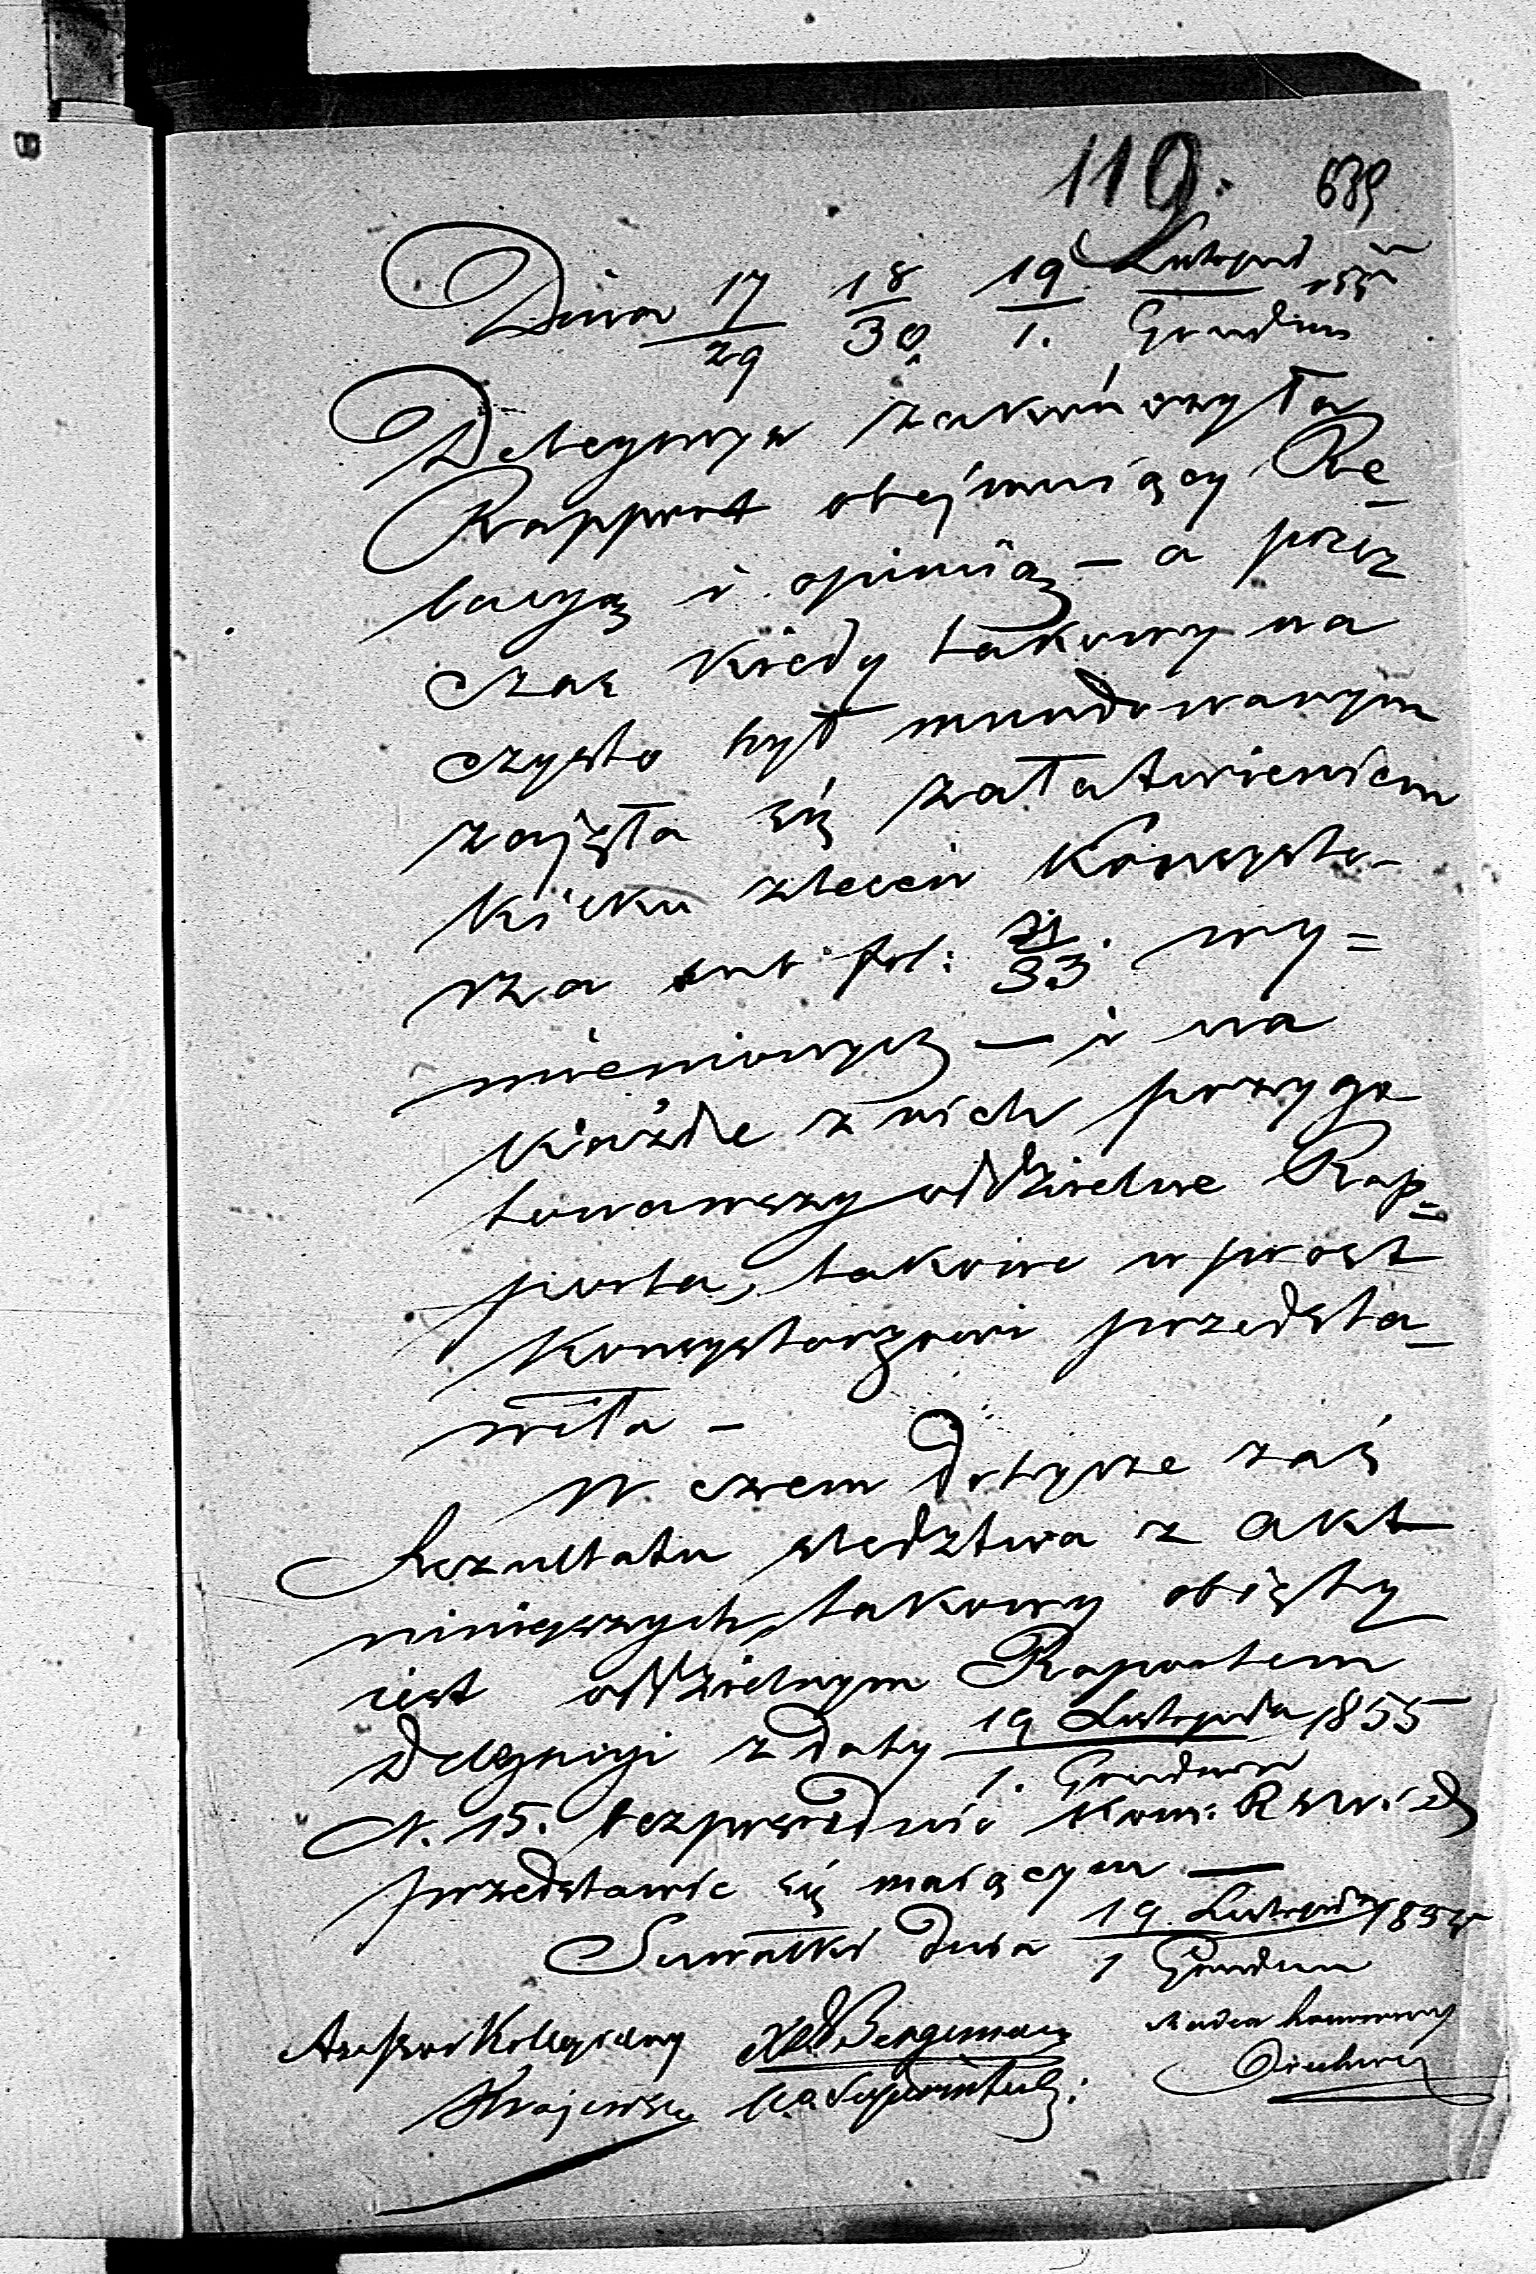 119. 639
Dnia 17/29 18/30 19/1. Listopad/Grudnia 1855
Delegacya zakończyła
Rapport obejmuiący Re-
lacyą i opinią — a przez
czas kiedy takowy na
czysto był mundowanym
zajęła się załatwieniem
kilku zleceń Konsysto-
rza sub fol: 31/33. wy=
mienionych — i na
każde z nich przygo
towawszy oddzielne Rap=
porta, takowe wprost
Konsystorzowi przedsta-
wiła —
W czem dotycze zaś
Rezultatu śledztwa z akt
niniejszych, takowy obięty
iest oddzielnym Raportem
Delegacyi z daty 19 Listopada/1. Grudnia 1855
N. 15. bezpośrednio Kom: R S W. i D
przedstawić się maiącym —
Suwałki dnia 19. Listopada/1 Grudnia 1855
Assessor Kollegialny Bergemann Radca
Krajewski Superintend: